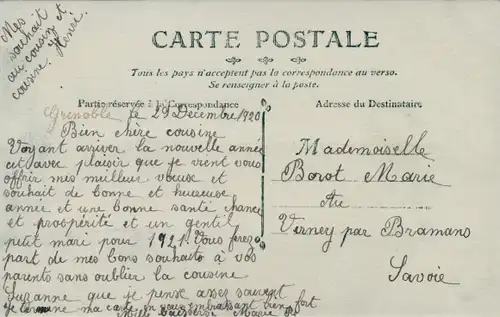 Mes
souhait
au cousin et
cousine. Henri.
CARTE POSTALE
Tous les pays n'acceptent pas la correspondance au verso.
Se renseigner à la poste.
Partie réservée à la Correspondance
Adresse du Destinataire
Grenoble le 29 Décembre 1920
Bien chère cousine
Voyant arriver la nouvelle année
cet aver plaisir que je vient vous
offrir mes meilleur vœux et
souhait de bonne et hureuse
année et une bonne santé chance
et prospérité et un gentil
petit mari pour 1921. Vous ferez
part de mes bons souhaits à vos
parents sans oublier la cousine
Suzanne que je pense asser souvent
je termine ma carte en vous embrassant bien fort
Marie
Mademoiselle
Borot Marie
Au
Verney par Bramans
Savoie